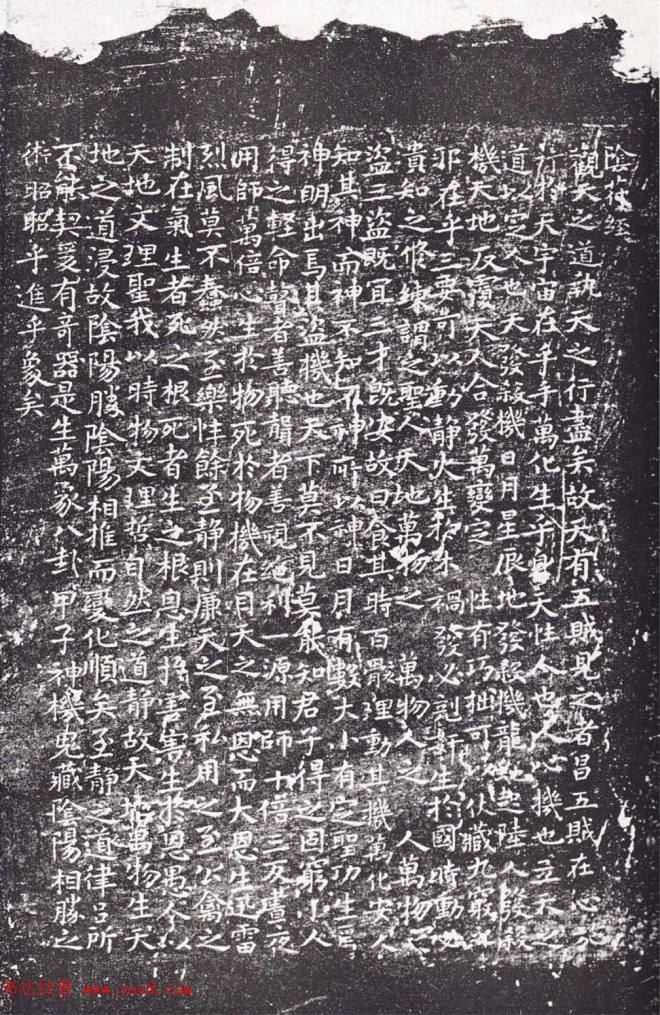 陰符經
觀天之道執天之行盡矣故天有五賊見之者昌五賊在心施
行於天宇宙在乎手萬化生乎身天性人也人心機也立天之
道以定人也天發殺機日月星辰地發殺機龍蛇起陸人發殺
機天地反覆天人合發萬變定 性有巧拙可以伏藏九竅之
邪在乎三要可以動靜火生於木 禍發必剋姧生於國時動必
潰知之修練謂之聖人天地萬物之 萬物人之 人萬物之
盜三盜既宜三才既安故曰食其時百骸理動其機萬化安人
知其神而神不知不神所以神日月有數大小有定聖功生焉
神明出焉其盜機也天下莫不見莫能知君子得之固窮小人
得之輕命瞽者善聽聾者善視絕利一源用師十倍三反晝夜
用師萬倍心生於物死於物機在目天之無恩而大恩生迅雷
烈風莫不蠢然至樂性餘至靜則廉天之至私用之至公禽之
制在氣生者死之根死者生之根恩生於害害生於恩愚人以
天地文理聖我以時物文理哲自然之道静故天地萬物生天
地之道浸故陰陽勝陰陽相推而變化順矣至静之道律呂所
不能契爰有奇器是生萬象八卦甲子神機鬼藏陰陽相勝之
術昭昭乎進乎象矣
书法欣赏 www.yac8.com